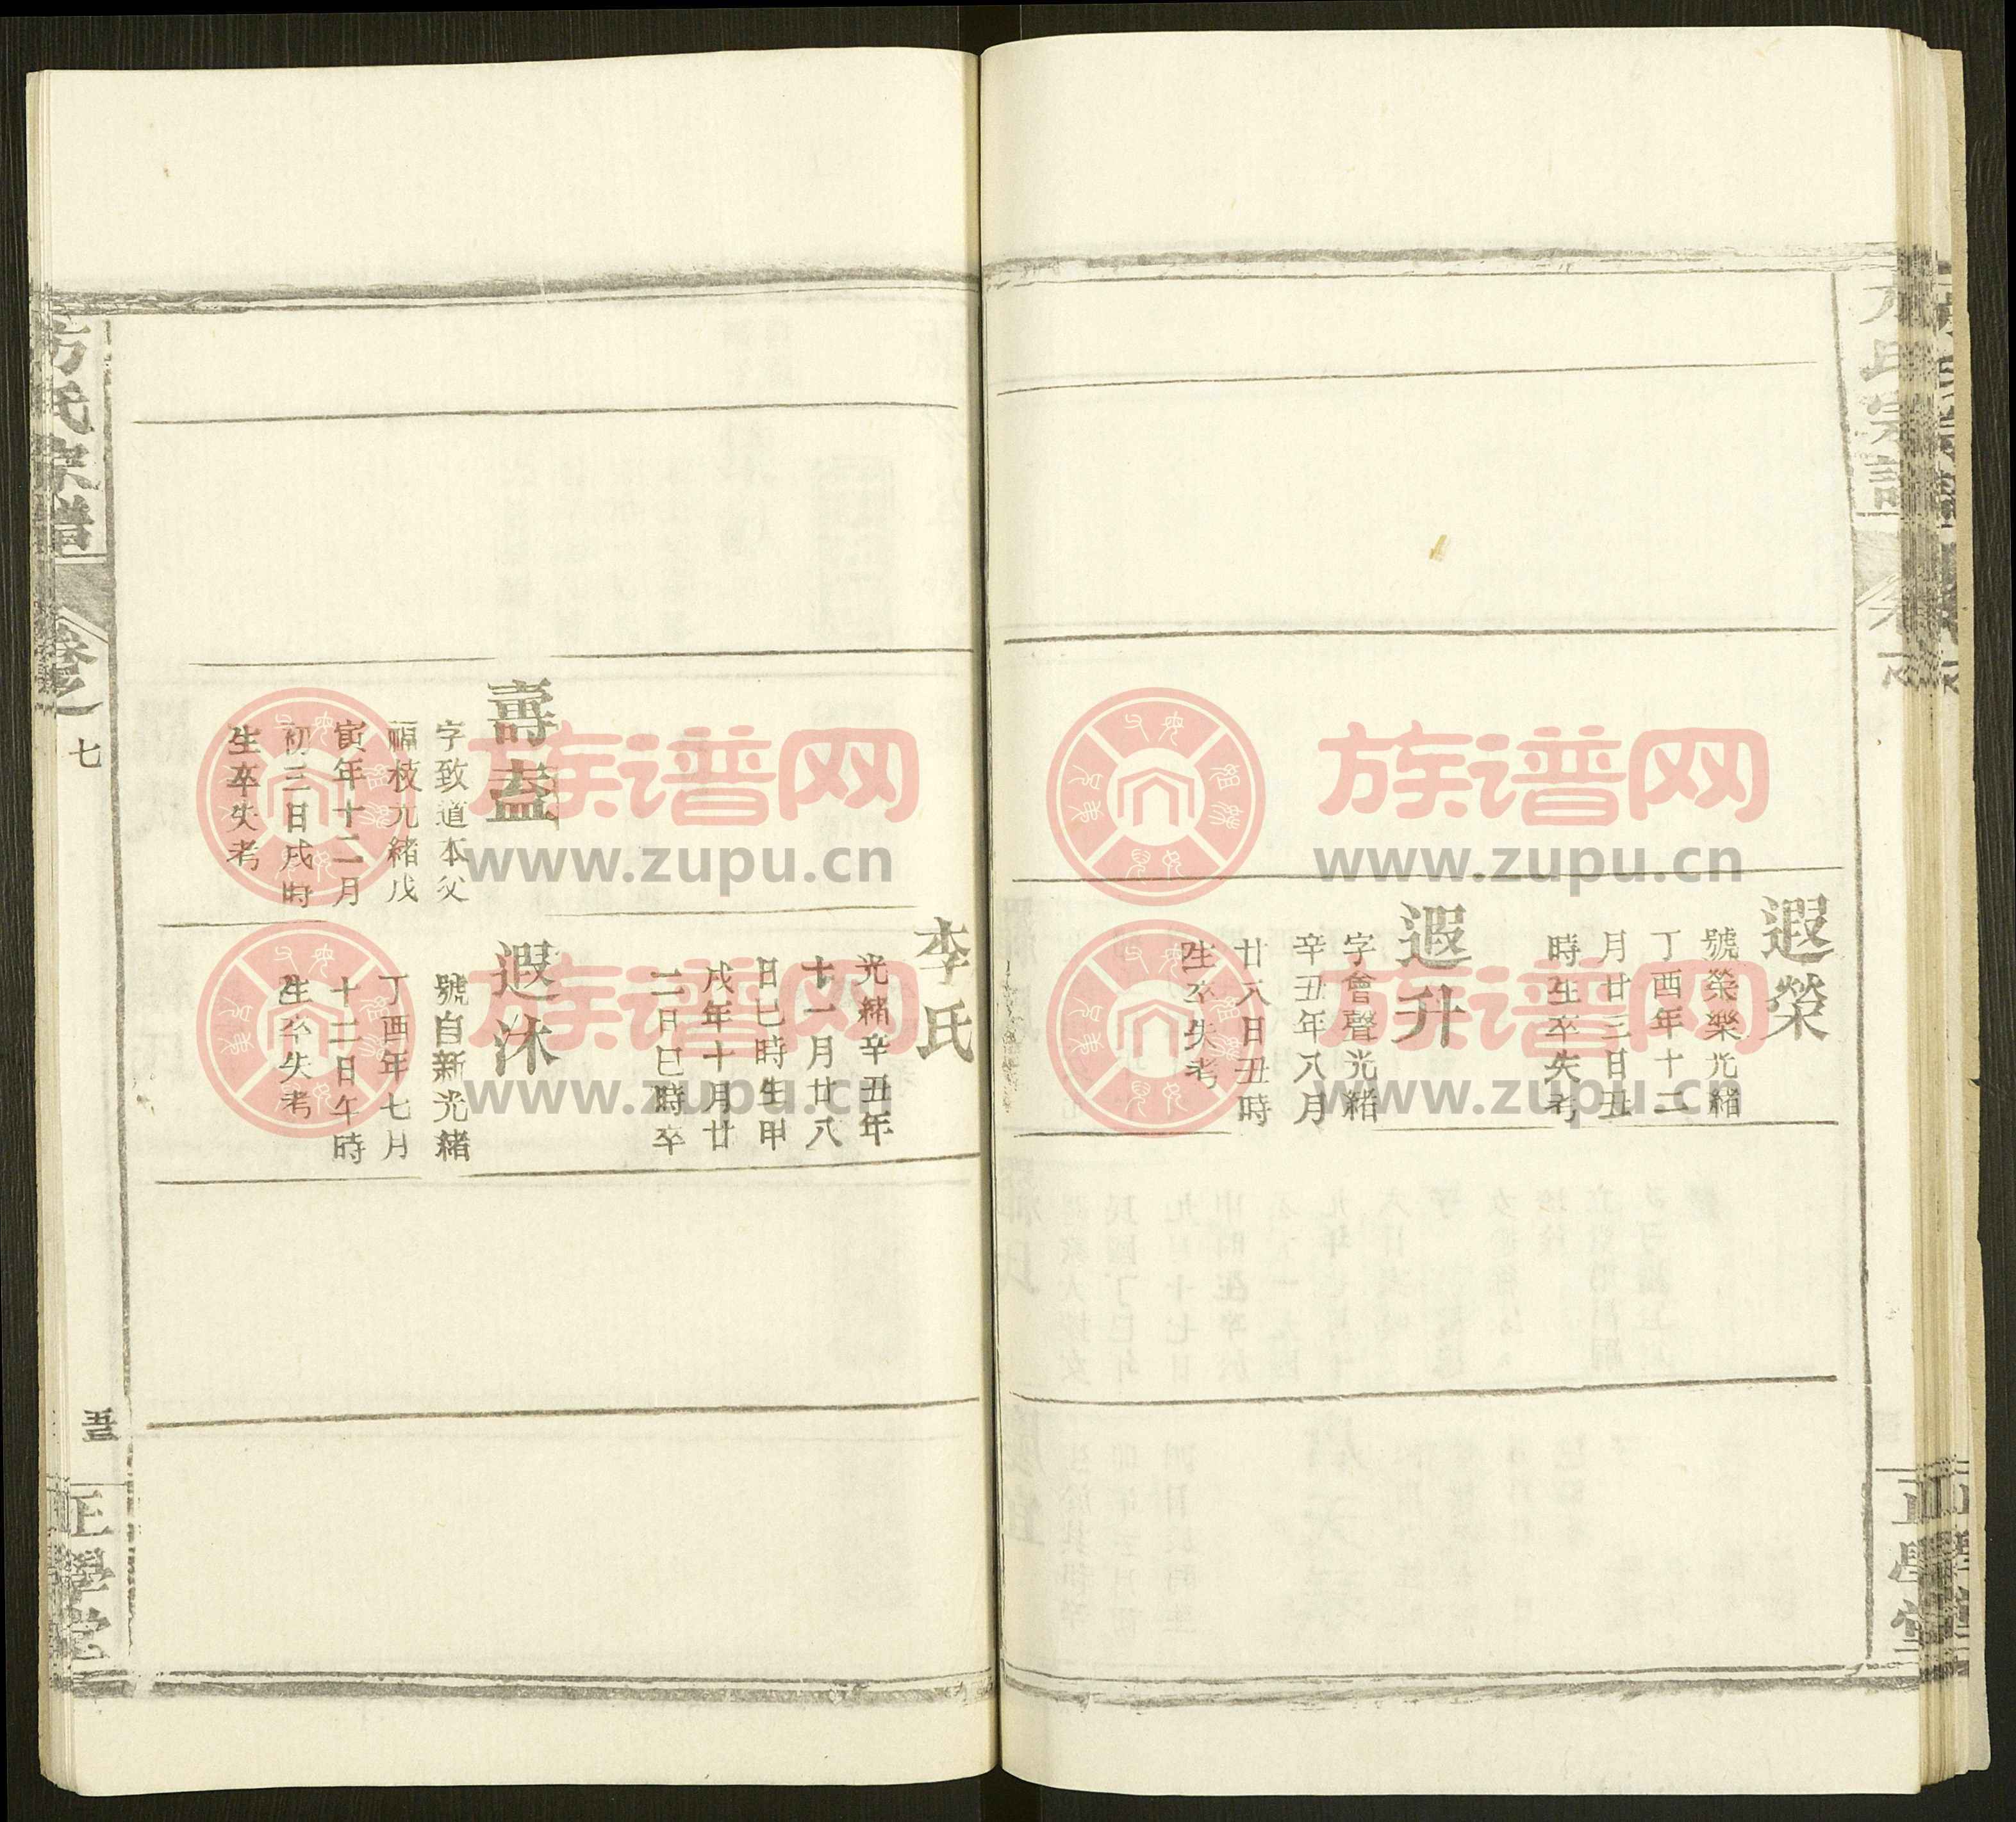 遐榮
號榮樂光緒
丁酉年十二
月廿三日丑
時生卒失考
遐升
字會聲光緒
辛丑年八月
廿八日丑時
生卒失考
李氏
光緒辛丑年
十一月廿八
日巳時生甲
戌年十月廿
二日巳時卒
壽盍
字致道本父
福枝光緒戊
寅年十二月
初三日戌時
生卒失考
遐沐
號自新光緒
丁酉年七月
十二日午時
生卒失考
方氏宗譜
卷之
七
正學堂
族谱网
www.zupu.cn
族谱网
www.zupu.cn
www.zupu.cn
www.zupu.cn